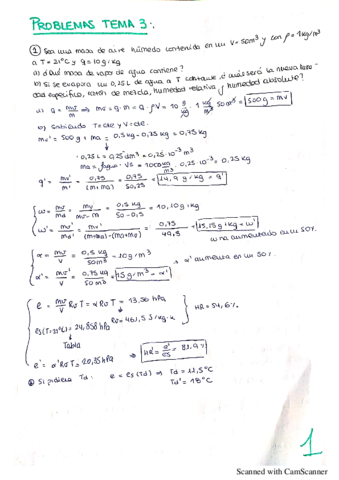 PROBLEMAS TEMA 3:
① Sea una masa de aire húmedo contenido en un V=50m³ y con ρ=1kg/m³
a T=21ºC y q=10g/kg.
a) ¿Qué masa de vapor de agua contiene?
b) Si se evapora un 0,25L de agua a T constante, ¿cuáles será la nueva
específica, razón de mezcla, humedad relativa y humedad absoluta?
a) q = mv/m ⇒ mv = q·m = q·ρV = 10 g/kg · 1 kg/m³ · 50m³ = 500g = mv
b) Sabiendo T=cte y V=cte.
mv' = 500g + ma = 0,5kg + 0,25kg = 0,75kg
0,25L = 0,25dm³ = 0,25·10⁻³ m³
ma = ρagua · Va = 1000 kg/m³ · 0,25·10⁻³ = 0,25 kg
q' = mv'/m' = 0,75/(m+ma) = 0,75/50,25 = 14,9 g/kg = q'
w = mv/md = mv/(m-mv) = 0,5 kg/(50-0,5) = 10,10 g/kg
w' = mv'/md' = mv'/((m+ma)-(ma+mv)) = 0,75/49,5 = 15,15 g/kg = w'
w ha aumentado un 50%.
α = mv/V = 0,5 kg/50m³ = 10 g/m³
α' = mv'/V = 0,75 kg/50m³ = 15 g/m³ = α'
α' aumenta en un 50%.
e = mv/V Rv T = α Rv T = 13,56 hPa
Rv = 461,5 J/kg·K
HR = 54,6%
es(T=21ºC) = 24,858 hPa
Tabla
e' = α' Rv T = 20,35 hPa
HR' = e'/es = 81,9%
Si pidiera Td: e = es(Td) ⇒ Td = 11,5ºC
Td' = 18ºC
1
Scanned with CamScanner